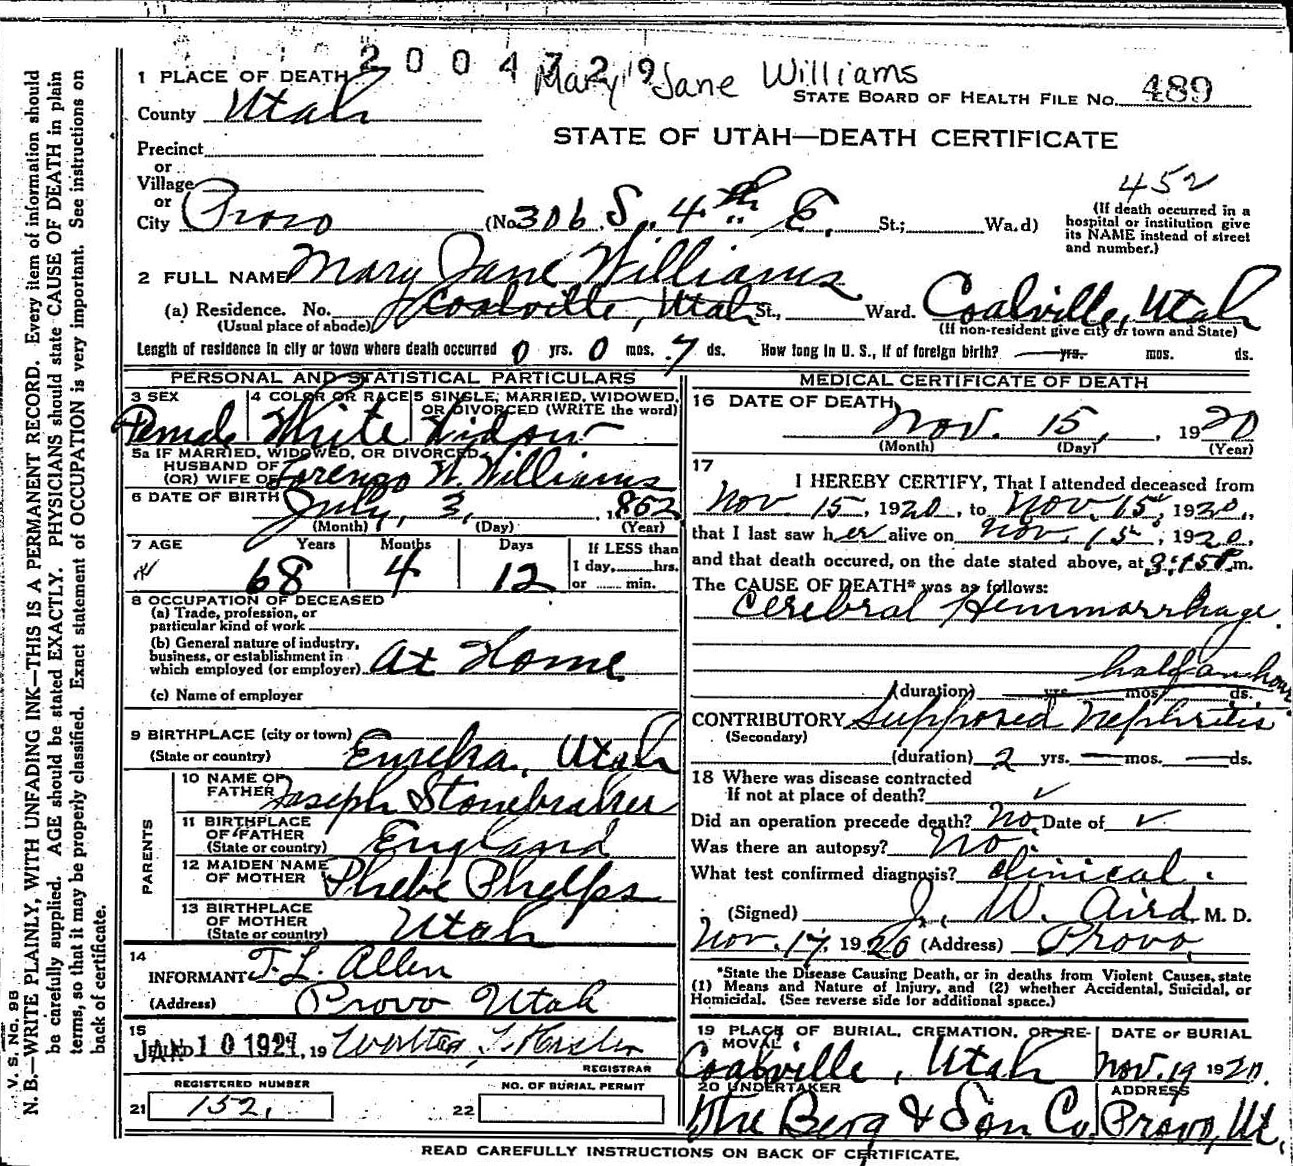 2004729
Mary Jane Williams
1 PLACE OF DEATH
STATE BOARD OF HEALTH FILE No. 489
County Utah
STATE OF UTAH—DEATH CERTIFICATE
Precinct
or
Village
or
City Provo (No 306 S. 4th E. St.; Wa.d)
452
(If death occurred in a
hospital or institution give
its NAME instead of street
and number.)
2 FULL NAME Mary Jane Williams
(a) Residence. No. Coalville, Utah St., Ward. Coalville, Utah
(Usual place of abode) (If non-resident give city or town and State)
Length of residence in city or town where death occurred 0 yrs. 0 mos. 7 ds. How long in U. S., if of foreign birth? yrs. mos. ds.
PERSONAL AND STATISTICAL PARTICULARS
3 SEX 4 COLOR OR RACE 5 SINGLE, MARRIED, WIDOWED,
OR DIVORCED (WRITE the word)
Female White Widow
5a IF MARRIED, WIDOWED, OR DIVORCED
HUSBAND OF
(OR) WIFE OF Lorenzo W. Williams
6 DATE OF BIRTH July, 3, 1862
(Month) (Day) (Year)
7 AGE Years Months Days If LESS than
1 day, hrs.
68 4 12 or min.
8 OCCUPATION OF DECEASED
(a) Trade, profession, or
particular kind of work
(b) General nature of industry,
business, or establishment in
which employed (or employer) At Home
(c) Name of employer
9 BIRTHPLACE (city or town)
(State or country) Eureka, Utah
PARENTS
10 NAME OF
FATHER Joseph Stonebraker
11 BIRTHPLACE
OF FATHER
(State or country) England
12 MAIDEN NAME
OF MOTHER Phebe Phelps
13 BIRTHPLACE
OF MOTHER
(State or country) Utah
14
INFORMANT T. L. Allen
(Address) Provo Utah
15
FILED JAN 10 1921, 19
REGISTRAR
REGISTERED NUMBER NO. OF BURIAL PERMIT
21 152, 22
MEDICAL CERTIFICATE OF DEATH
16 DATE OF DEATH
Nov. 15, 1920
(Month) (Day) (Year)
17
I HEREBY CERTIFY, That I attended deceased from
Nov. 15, 1920, to Nov. 15, 1920,
that I last saw her alive on Nov. 15, 1920,
and that death occured, on the date stated above, at 9:15 P m.
The CAUSE OF DEATH* was as follows:
Cerebral Hemmorrhage.
half an hour
(duration) yrs. mos. ds.
CONTRIBUTORY Supposed Nephritis
(Secondary)
(duration) 2 yrs. — mos. — ds.
18 Where was disease contracted
If not at place of death? ✓
Did an operation precede death? No. Date of ✓
Was there an autopsy? No.
What test confirmed diagnosis? Clinical.
(Signed) J. W. Aird M. D.
Nov. 17, 1920 (Address) Provo.
*State the Disease Causing Death, or in deaths from Violent Causes, state
(1) Means and Nature of Injury, and (2) whether Accidental, Suicidal, or
Homicidal. (See reverse side for additional space.)
19 PLACE OF BURIAL, CREMATION, OR RE-
MOVAL
DATE OF BURIAL
Coalville, Utah Nov. 19 1920.
20 UNDERTAKER ADDRESS
The Berg & Son Co. Provo, Ut.
READ CAREFULLY INSTRUCTIONS ON BACK OF CERTIFICATE.
V. S. No. 9B
N. B.—WRITE PLAINLY, WITH UNFADING INK—THIS IS A PERMANENT RECORD. Every item of information should
be carefully supplied. AGE should be stated EXACTLY. PHYSICIANS should state CAUSE OF DEATH in plain
terms, so that it may be properly classified. Exact statement of OCCUPATION is very important. See instructions on
back of certificate.